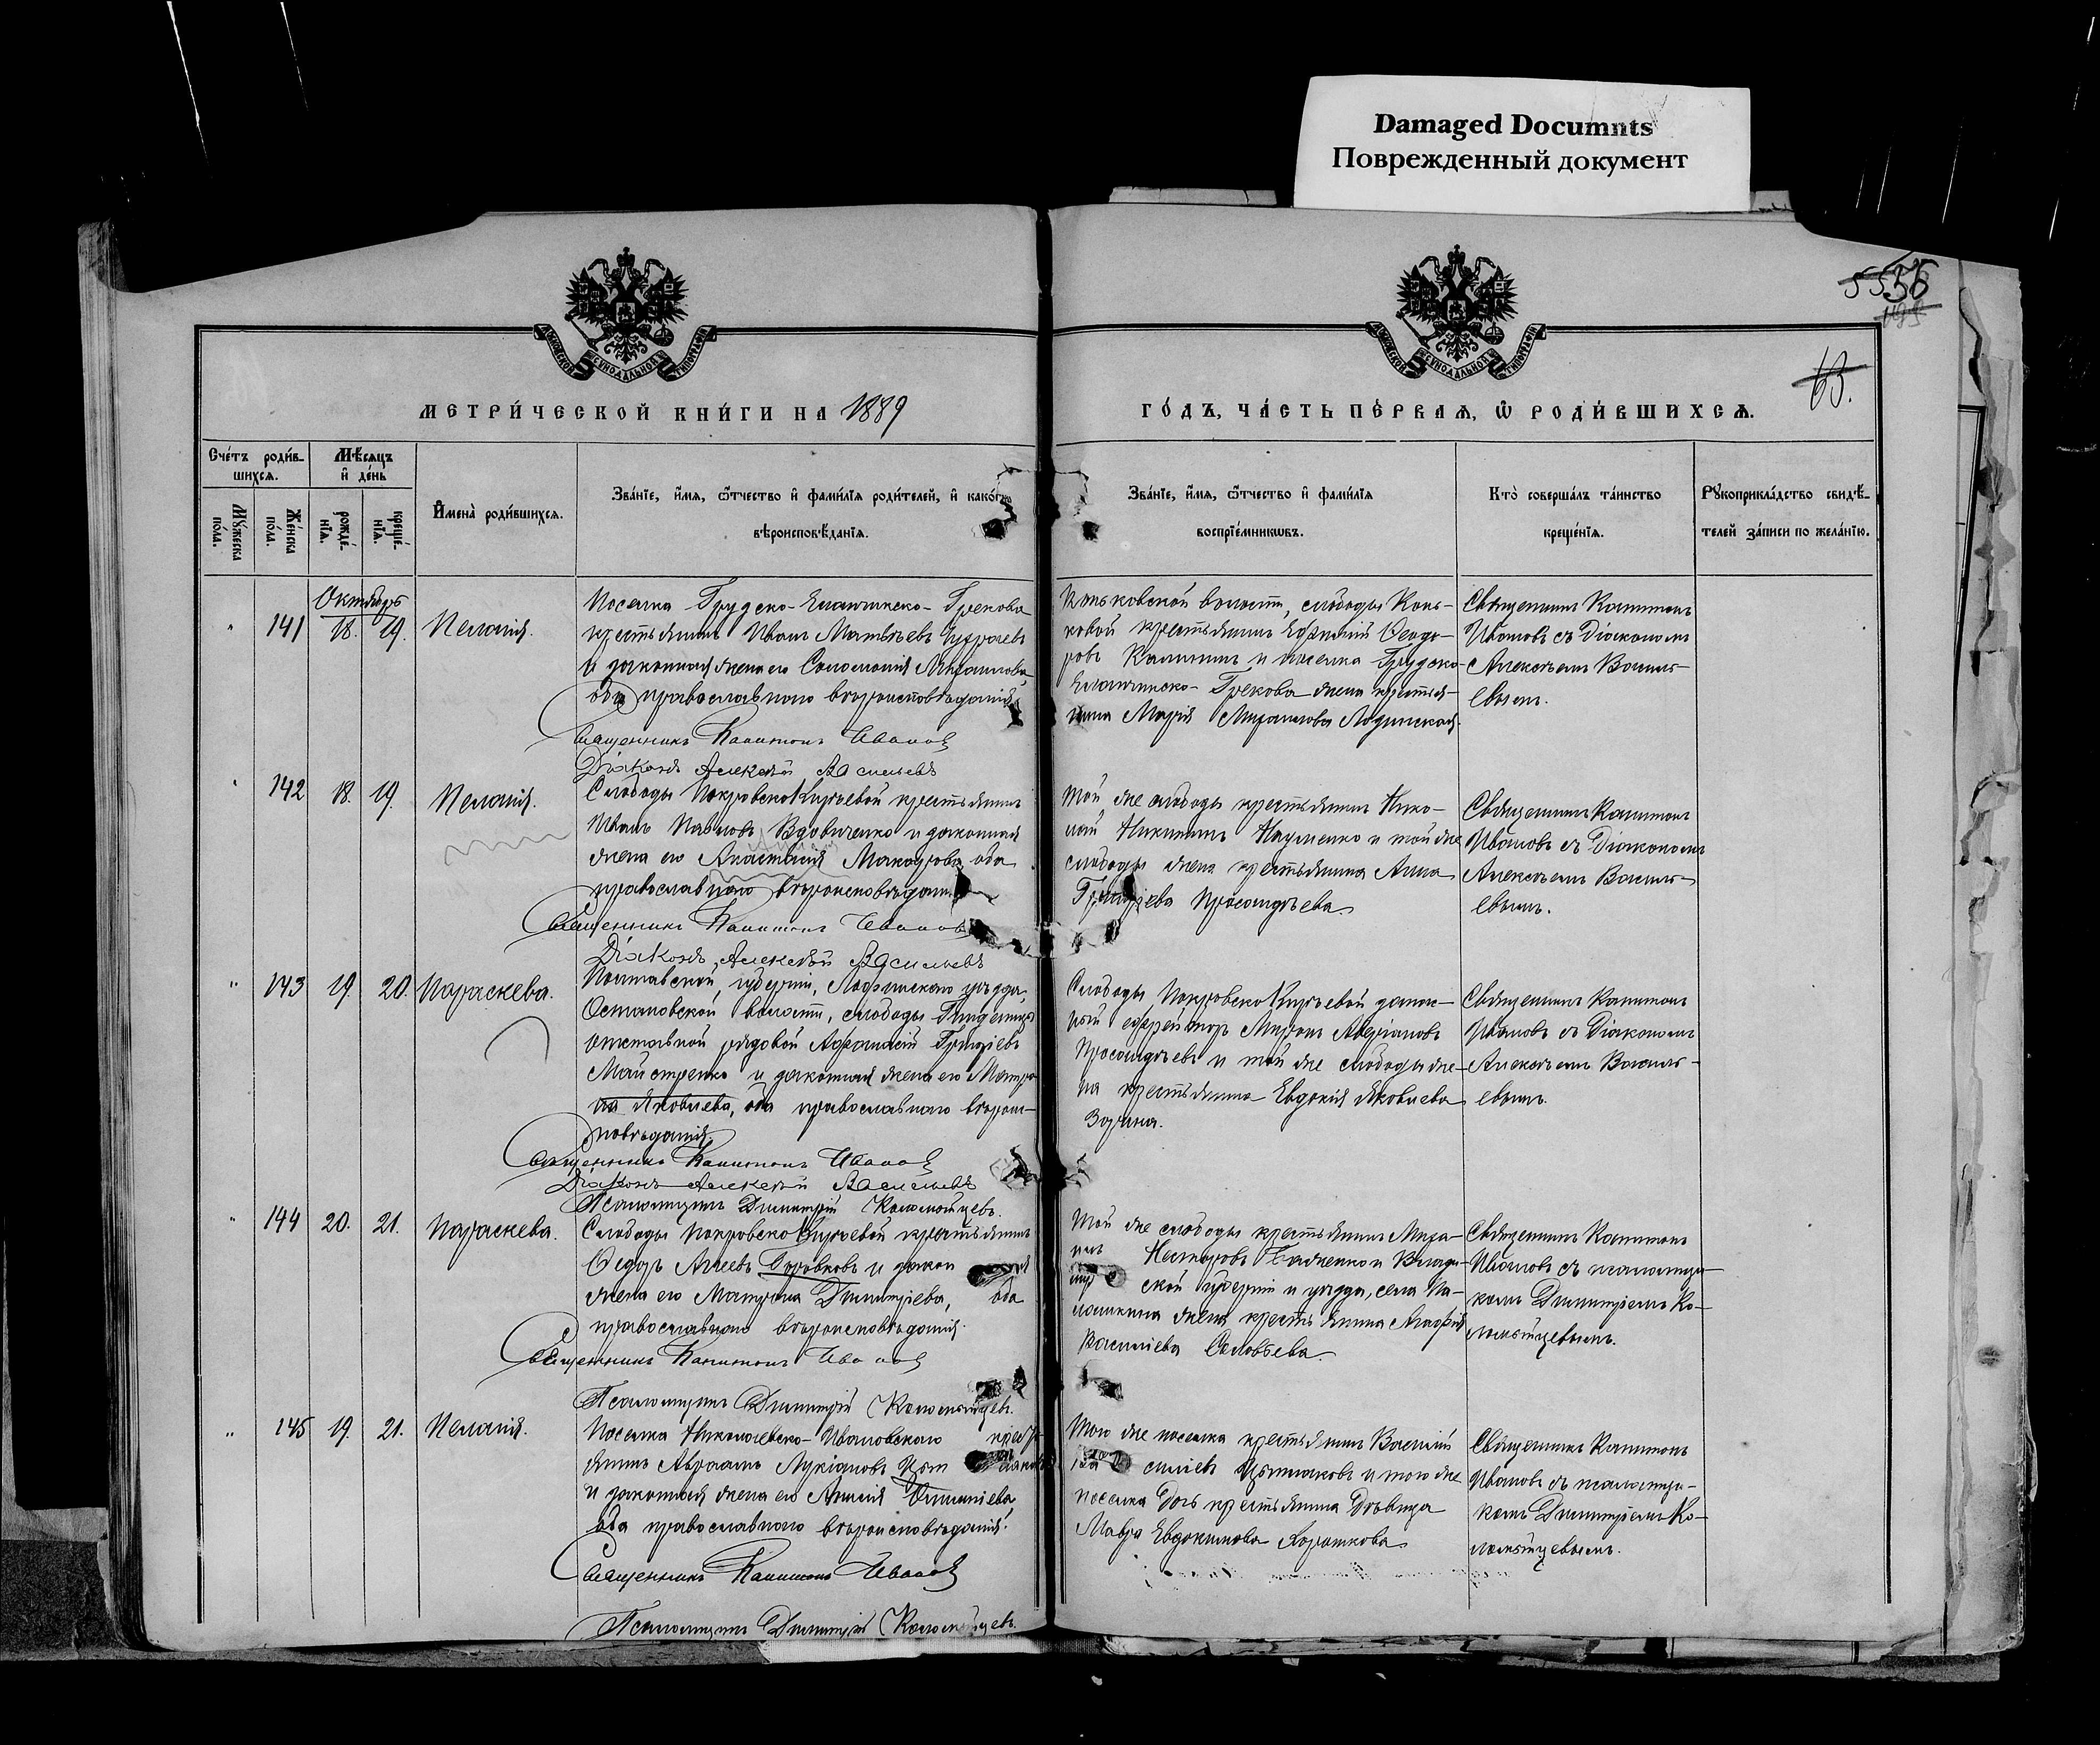 Damaged Documnts
Поврежденный документ
5556
63.
МОСКОВСКОЙ СѴНОДАЛЬНОЙ ТИПОГРАФІИ
МОСКОВСКОЙ СѴНОДАЛЬНОЙ ТИПОГРАФІИ
МЕТРИ́ЧЕСКОЙ КНИ́ГИ НА 1889
ГО́ДЪ, ЧА́СТЬ ПЕ́РВАѦ, Ѡ҆ РОДИ́ВШИХСѦ.
Сче́тъ роди́в-
шихсѧ.
Мѣ́сѧцъ
и҆ де́нь
Мꙋ́жеска
по́ла.
Же́нска
по́ла.
рожде́-
нїѧ.
креще́-
нїѧ.
И҆мена̀ роди́вшихсѧ.
Зва́нїе, и҆́мѧ, ѻ҆́тчество и҆ фами́лїѧ роди́телей, и҆ како́гѡ
вѣроисповѣ́данїѧ.
Зва́нїе, и҆́мѧ, ѻ҆́тчество и҆ фами́лїѧ
воспрїе́мникѡвъ.
Кто̀ соверша́лъ та́инство
креще́нїѧ.
Рꙋкоприкла́дство свидѣ́-
телей за́писи по жела́нїю.
Октябрь
" 141 18. 19. Пелагія.
Поселка Грудско-Еланчинско-Грекова
крестьянинъ Иванъ Матвѣевъ
и законная жена его Соломонія Михаилова
оба православнаго вѣроисповѣданія
Священникъ Капитонъ Ивановъ
Діаконъ Алексѣй Васильевъ
Коньковской волости, слободы Конь-
ковой крестьянинъ Ефимій Ѳеодо-
ровъ Калинин и поселка Грудско-
Еланчинско-Грекова жена крестья-
нина Марія Михаилова
Священникъ Капитонъ
Ивановъ съ Діакономъ
Алексѣемъ Василь-
евымъ.
" 142 18. 19. Пелагія.
Слободы Покровско-Кирѣевой крестьянинъ
Иванъ Павловъ Вдовиченко и законная
жена его Анастасія Макарова оба
православнаго вѣроисповѣданія
Священникъ Капитонъ Ивановъ
Діаконъ Алексѣй Васильевъ
Той же слободы крестьянинъ Нико-
лай Никитинъ Науменко и той же
слободы жена крестьянина Анна
Григорьева Просандѣева.
Священникъ Капитонъ
Ивановъ съ Діакономъ
Алексѣемъ Василь-
евымъ.
" 143 19. 20. Параскева.
Полтавской губерніи, Лохвицкаго уѣзда,
волости, слободы
отставной рядовой Афанасій Григорьевъ
Майстренко и законная жена его Матро-
на Яковлева, оба православнаго вѣроис-
повѣданія.
Священникъ Капитонъ Ивановъ
Діаконъ Алексѣй Васильевъ
Псаломщикъ Димитрій Коломыйцевъ.
Слободы Покровско-Кирѣевой запас-
ный ефрейторъ Миронъ Аверіановъ
Просандѣевъ и той же слободы же-
на крестьянина Евдокія Яковлева
Зорина.
Священникъ Капитонъ
Ивановъ съ Діакономъ
Алексѣемъ Василь-
евымъ.
" 144 20. 21. Параскева.
Слободы Покровско-Кирѣевой крестьянинъ
Ѳедоръ Агеевъ Боровковъ и закон я
жена его Матрона Димитріева, оба
православнаго вѣроисповѣданія.
Священникъ Капитонъ Ивановъ
Псаломщикъ Димитрій Коломыйцевъ.
Той же слободы крестьянинъ Миха-
илъ Несторовъ и Влади-
мір ской губерніи и уѣзда, села Па-
лашкина жена крестьянина Марфа
Васильева Соловьева.
Священникъ Капитонъ
Ивановъ съ псаломщи-
комъ Димитріемъ Ко-
ломыйцевымъ.
" 145 19. 21. Пелагія.
Поселка Николаевско-Ивановскаго кресть-
янинъ Авраамъ Лукіановъ
и законная жена его
оба православнаго вѣроисповѣданія.
Священникъ Капитонъ Ивановъ
Псаломщикъ Димитрій Коломыйцевъ.
Того же поселка крестьянинъ Василій
Ва сильевъ и того же
поселка дочь крестьянина дѣвица
Мавра Евдокимова Короткова
Священникъ Капитонъ
Ивановъ съ псаломщи-
комъ Димитріемъ Ко-
ломыйцевымъ.